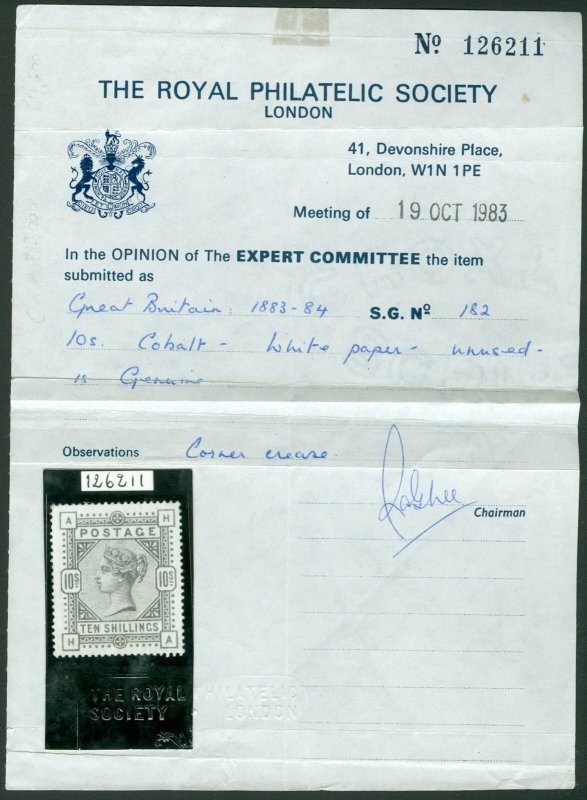 Nº 126211
THE ROYAL PHILATELIC SOCIETY
LONDON
41, Devonshire Place,
London, W1N 1PE
Meeting of 19 OCT 1983
In the OPINION of The EXPERT COMMITTEE the item
submitted as
Great Britain: 1883-84 S.G. Nº 182
10s. Cobalt - White paper - unused -
is Genuine
Observations Corner crease.
Chairman
126211
A H
POSTAGE
10S. 10S.
TEN SHILLINGS
H A
THE ROYAL PHILATELIC
SOCIETY LONDON